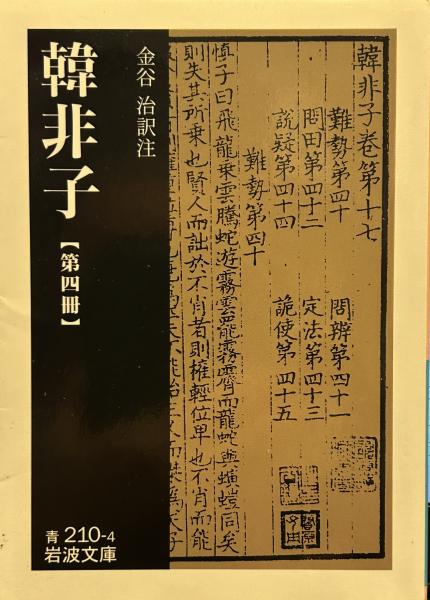 韓非子
【第四冊】
金谷 治訳注
韓非子卷第十七
難勢第四十
問辨第四十一
問田第四十二
定法第四十三
說疑第四十四
詭使第四十五
難勢第四十
慎子曰飛龍乗雲騰蛇遊霧雲罷霧霽而龍蛇與螾螘同矣
則失其所乗也賢人而詘於不肖者則權輕位卑也不肖而能
青 210-4
岩波文庫